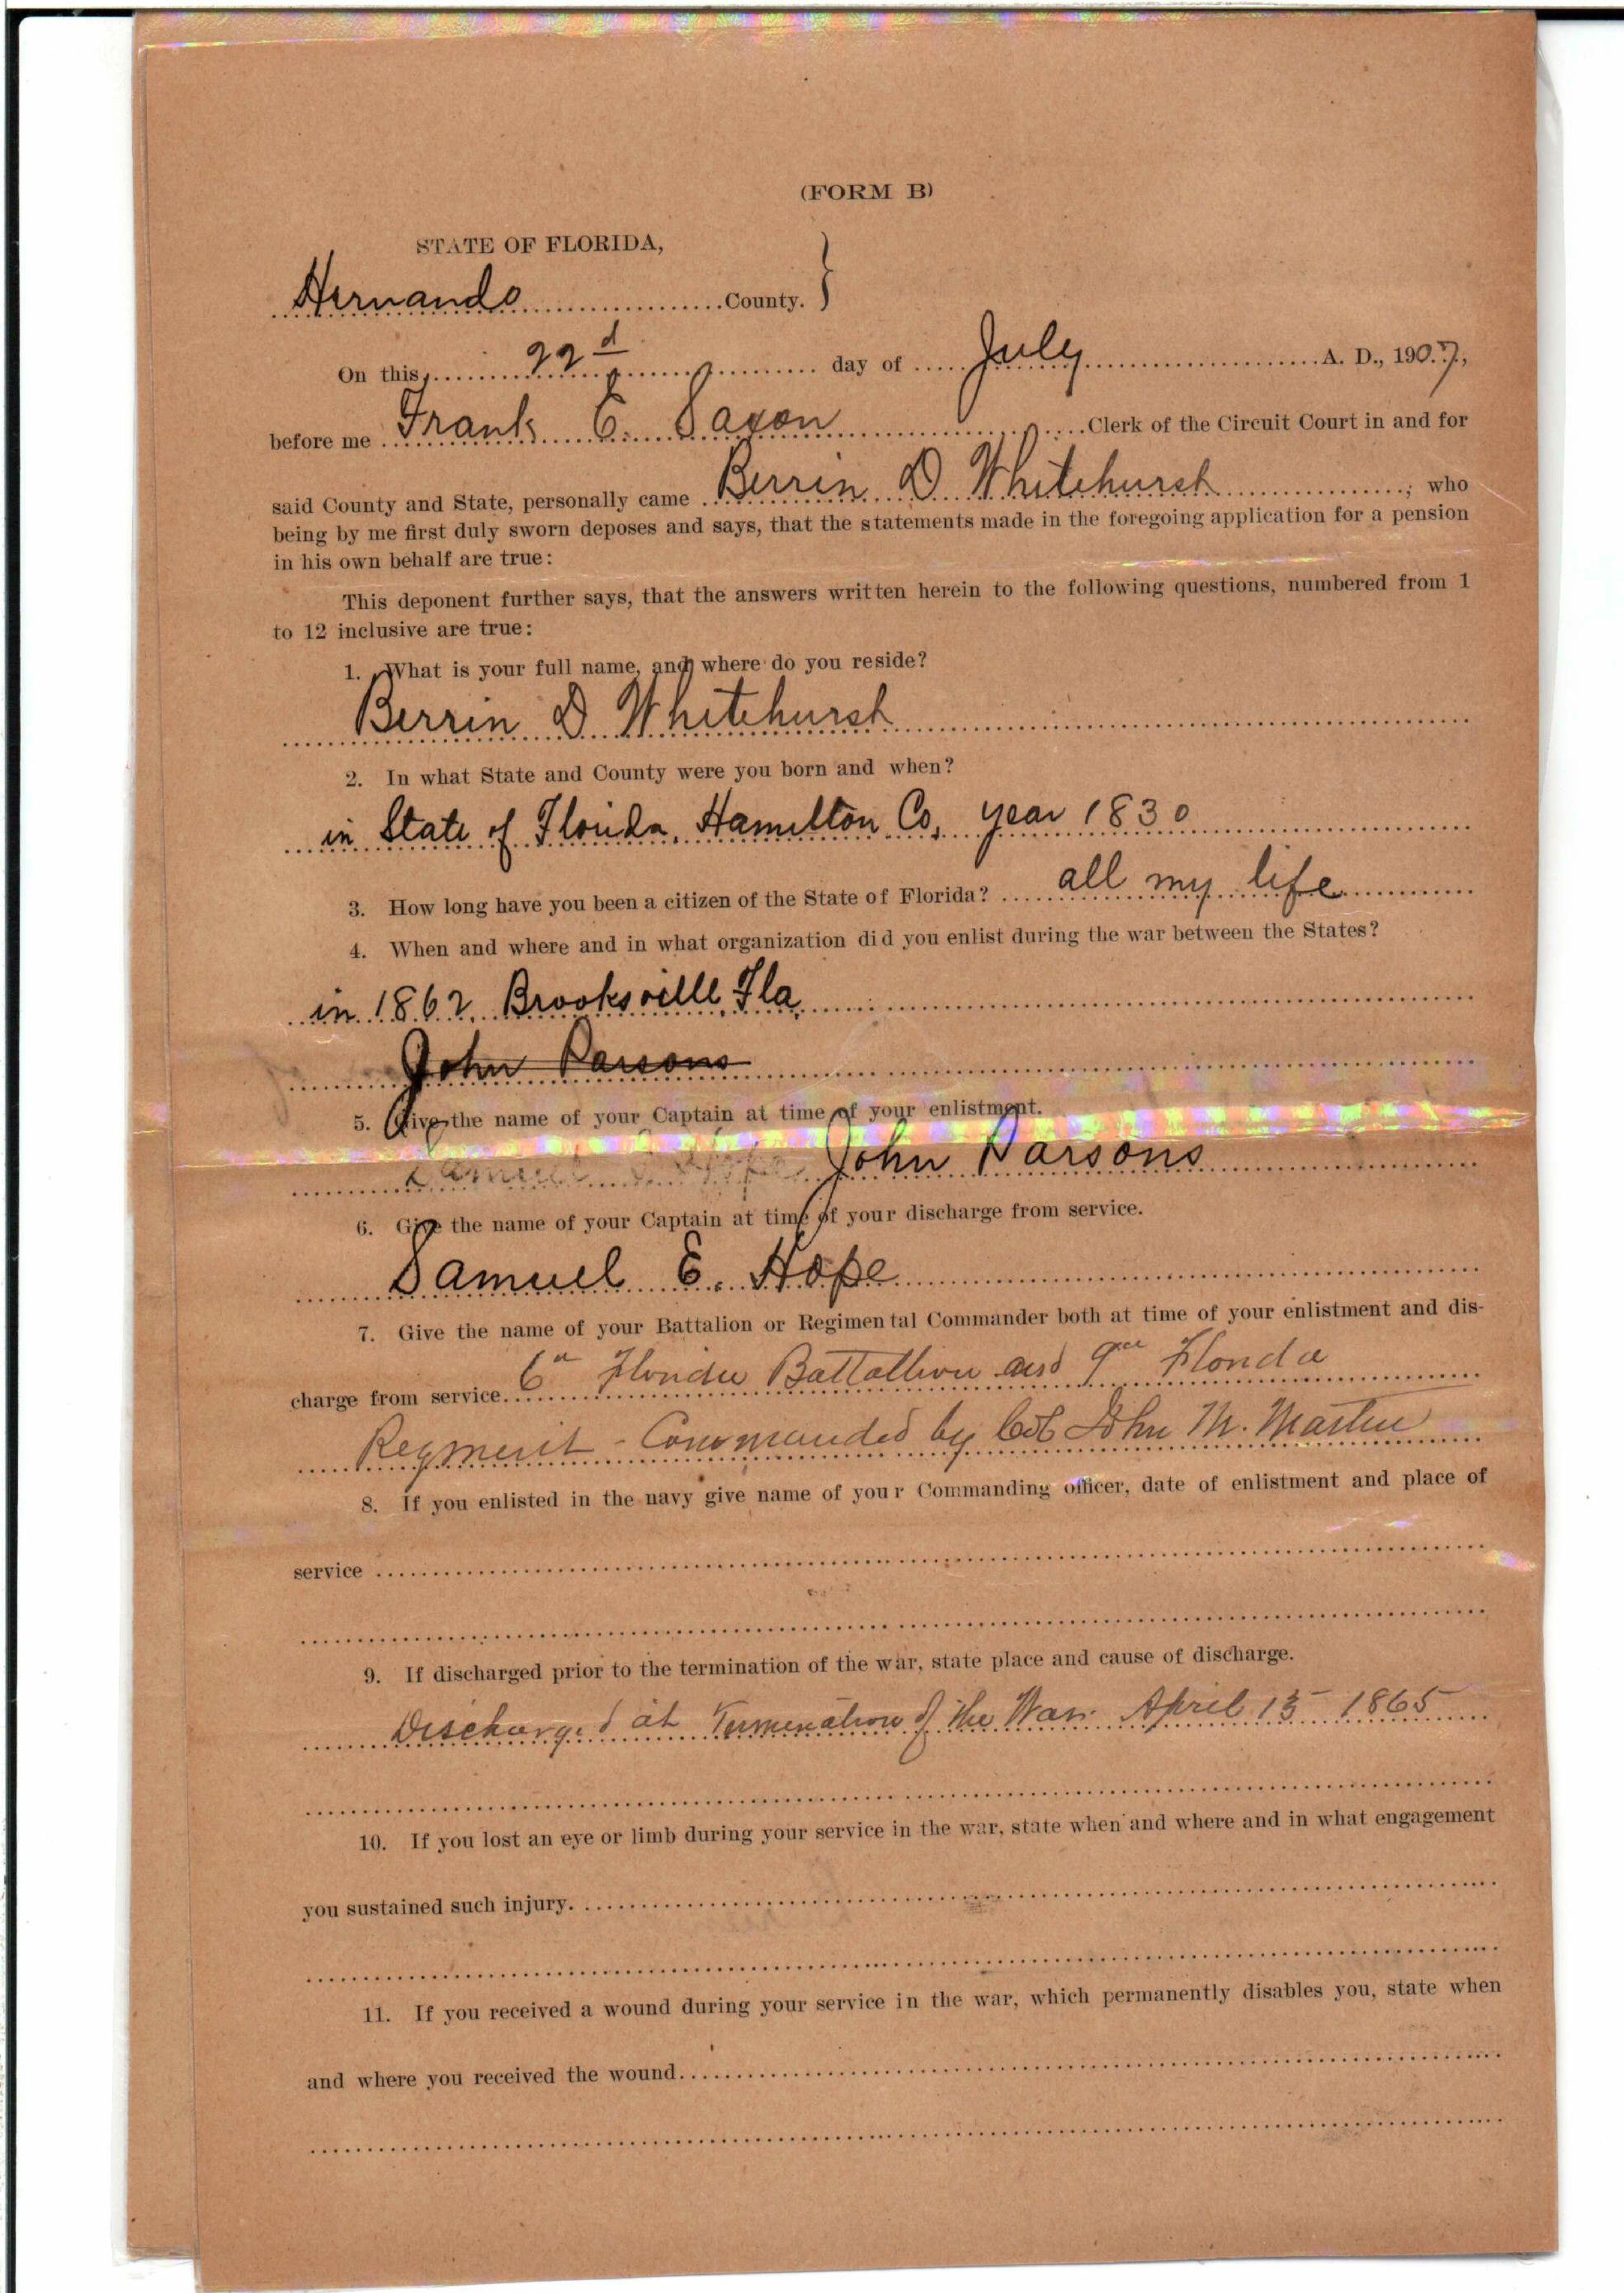 (FORM B)
STATE OF FLORIDA,
Hernando County. }
On this, 22d day of July A. D., 1907,
before me Frank E. Saxon Clerk of the Circuit Court in and for
said County and State, personally came Berrin D Whitehurst, who
being by me first duly sworn deposes and says, that the statements made in the foregoing application for a pension
in his own behalf are true:
This deponent further says, that the answers written herein to the following questions, numbered from 1
to 12 inclusive are true:
1. What is your full name, and where do you reside?
Berrin D Whitehurst
2. In what State and County were you born and when?
in State of Florida, Hamilton Co, year 1830
3. How long have you been a citizen of the State of Florida? all my life
4. When and where and in what organization did you enlist during the war between the States?
in 1862, Brooksville, Fla,
John Parsons
5. Give the name of your Captain at time of your enlistment.
Samuel E. Hope John Parsons
6. Give the name of your Captain at time of your discharge from service.
Samuel E. Hope
7. Give the name of your Battalion or Regimental Commander both at time of your enlistment and dis-
charge from service. 6th Florida Battallion and 9th Florida
Regment - Commanded by Col John M. Martin
8. If you enlisted in the navy give name of your Commanding officer, date of enlistment and place of
service
9. If discharged prior to the termination of the war, state place and cause of discharge.
Discharged at Termination of the War. April 15 1865
10. If you lost an eye or limb during your service in the war, state when and where and in what engagement
you sustained such injury.
11. If you received a wound during your service in the war, which permanently disables you, state when
and where you received the wound.